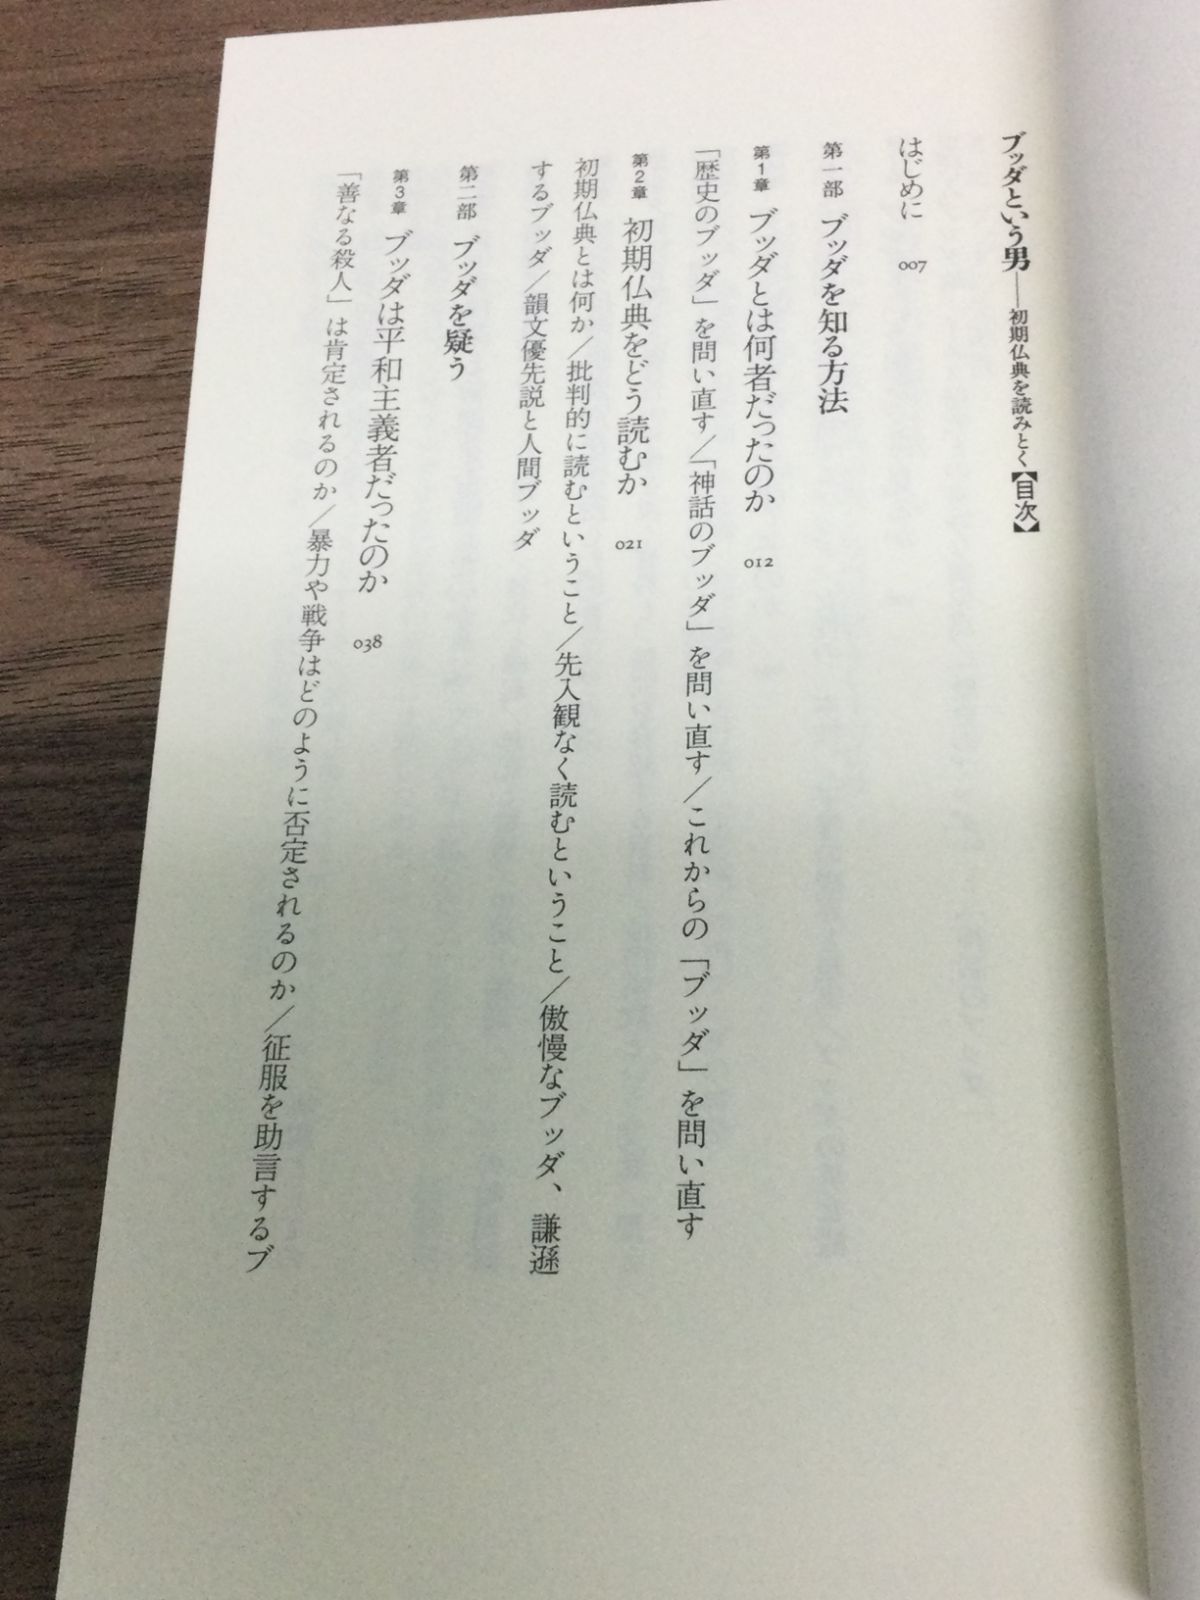 ブッダという男――初期仏典を読みとく【目次】
はじめに 007
第一部 ブッダを知る方法
第1章 ブッダとは何者だったのか 012
「歴史のブッダ」を問い直す／「神話のブッダ」を問い直す／これからの「ブッダ」を問い直す
第2章 初期仏典をどう読むか 021
初期仏典とは何か／批判的に読むということ／先入観なく読むということ／傲慢なブッダ、謙遜
するブッダ／韻文優先説と人間ブッダ
第二部 ブッダを疑う
第3章 ブッダは平和主義者だったのか 038
「善なる殺人」は肯定されるのか／暴力や戦争はどのように否定されるのか／征服を助言するブ